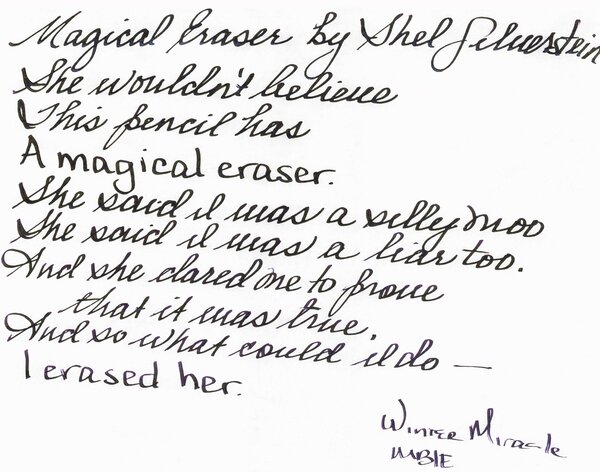 Magical Eraser by Shel Silverstein
She wouldn't believe
This pencil has
A magical eraser.
She said I was a silly moo
She said I was a liar too.
And she dared me to prove
that it was true.
And so what could I do —
I erased her.
Winter Miracle
MBIE